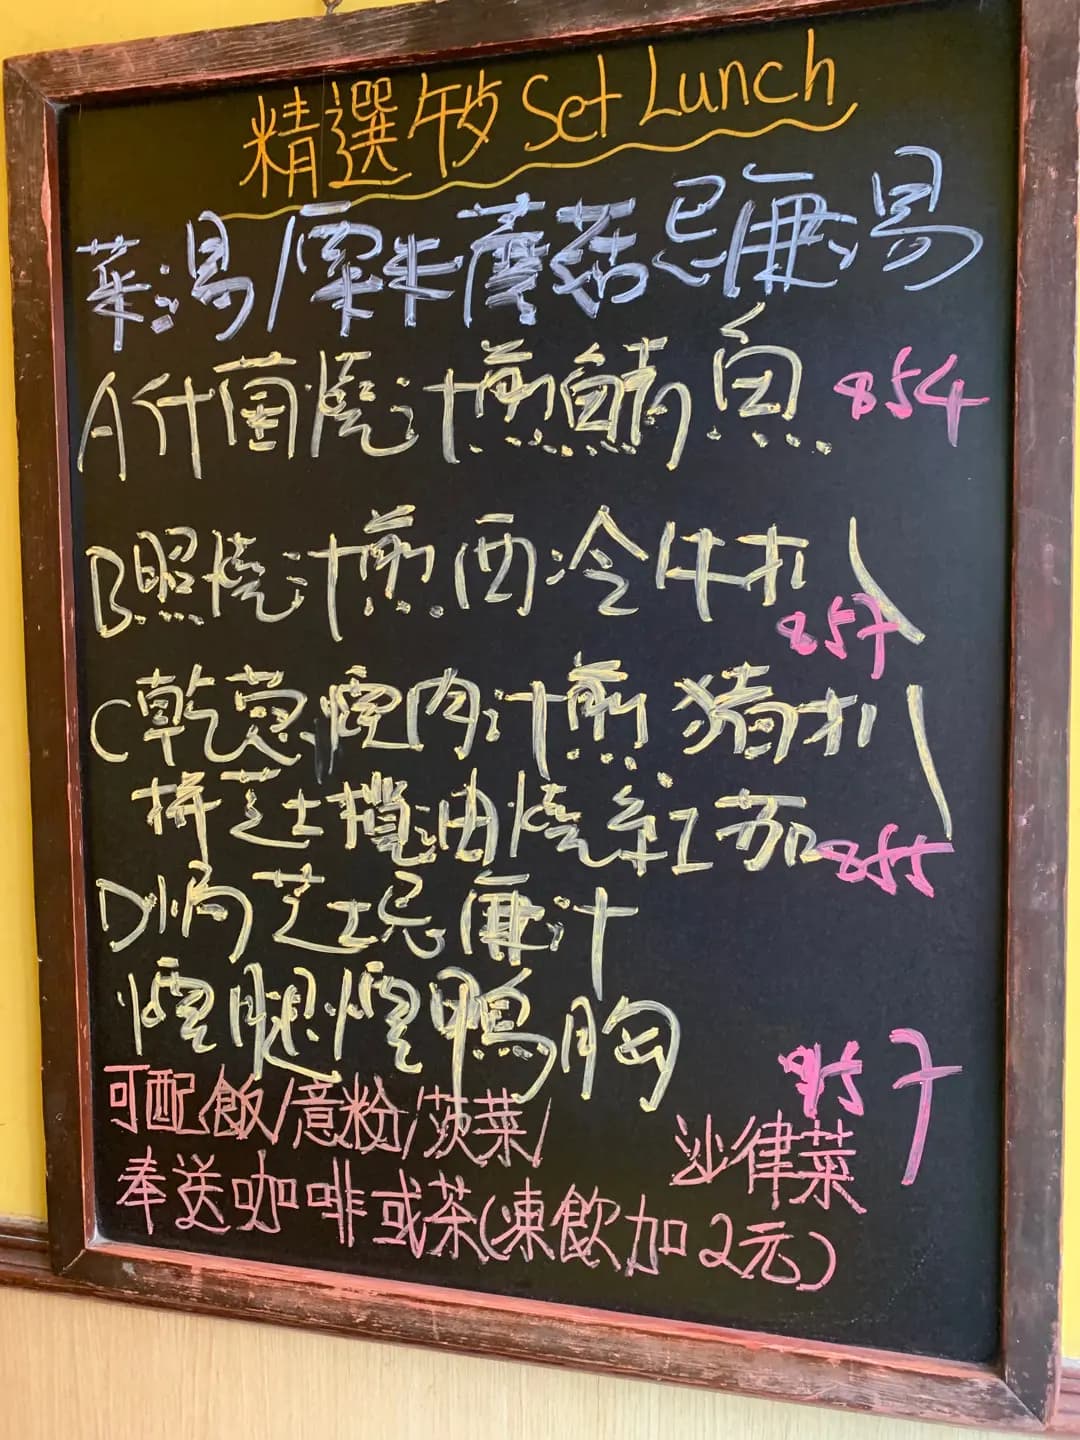 精選午歺 Set Lunch
菜湯/粟米蘑菇忌廉湯
A什菌燒汁煎鯖魚 $54
B照燒汁煎西冷牛扒
$57
C乾葱煙肉汁煎豬扒
拼芝士欖油燒紅茄 $55
D焗芝士忌廉汁
煙腿煙鴨胸
$57
可配飯/意粉/茨菜/沙律菜
奉送咖啡或茶(凍飲加2元)